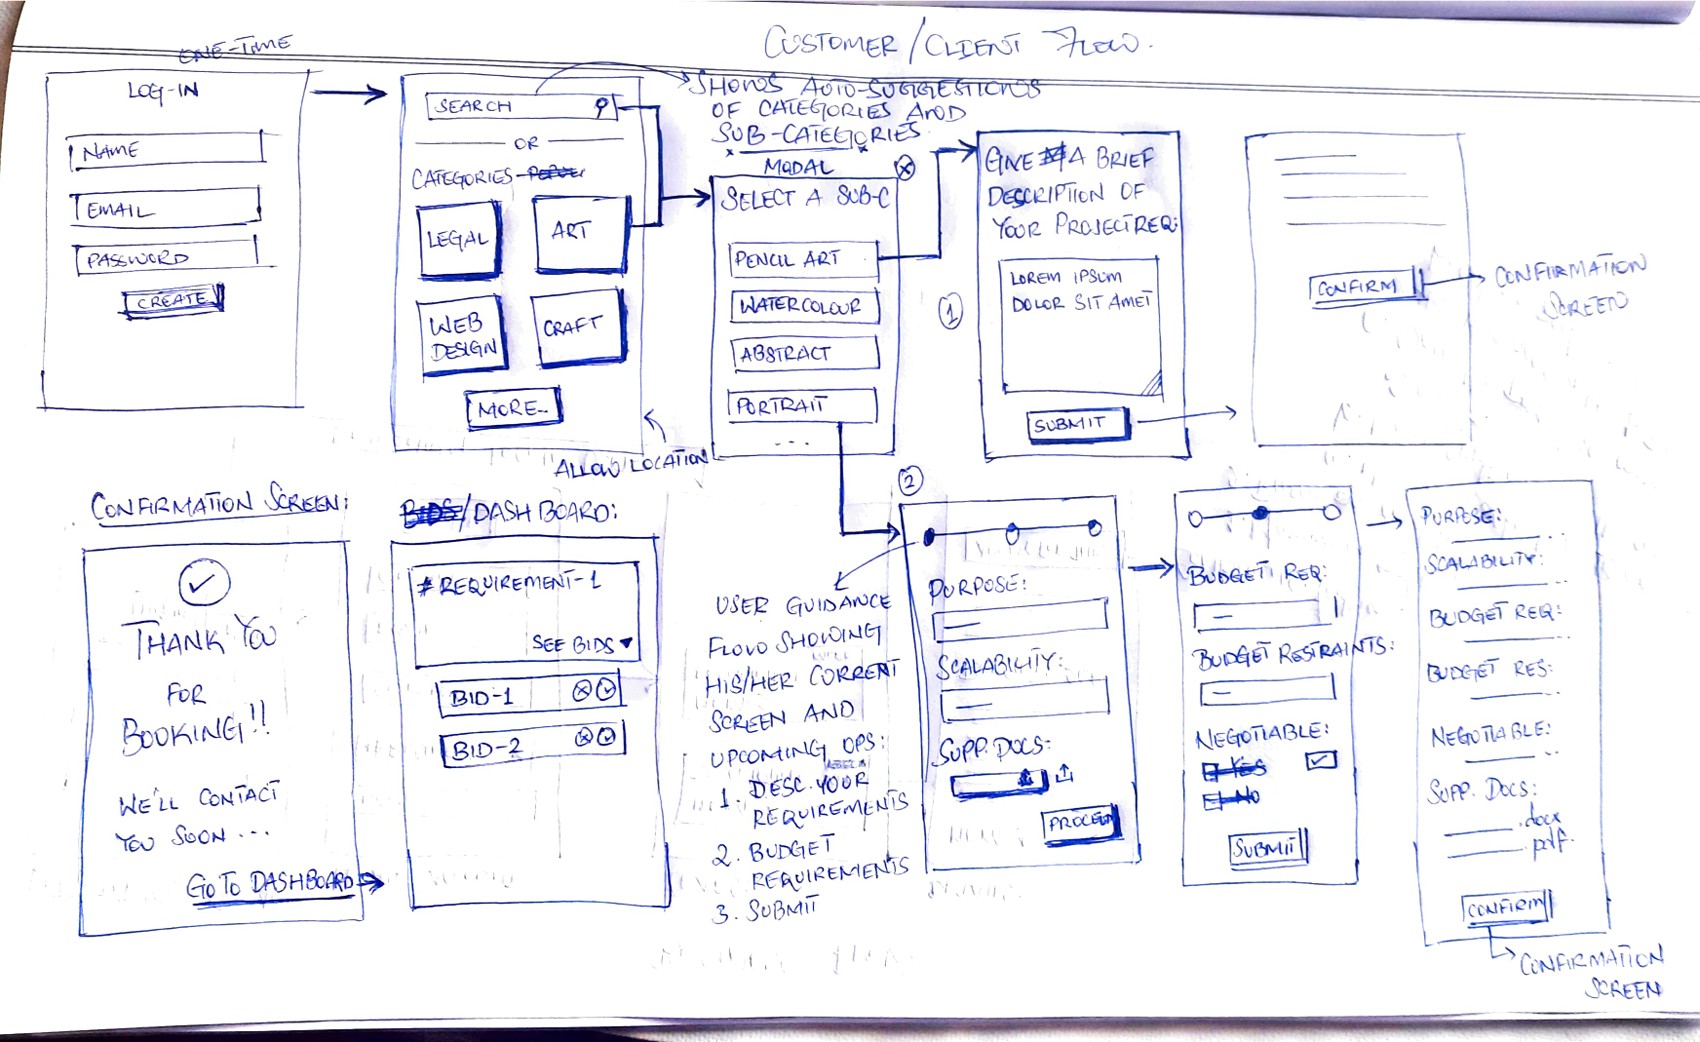 CUSTOMER/CLIENT FLOW.
ONE-TIME
LOG-IN
NAME
EMAIL
PASSWORD
CREATE
SEARCH
OR
CATEGORIES-
LEGAL
ART
WEB
DESIGN
CRAFT
MORE..
ALLOW LOCATION
SHOWS AUTO-SUGGESTIONS
OF CATEGORIES AND
SUB-CATEGORIES
MODAL
SELECT A SUB-C
PENCIL ART
WATERCOLOUR
ABSTRACT
PORTRAIT
...
1
GIVE A BRIEF
DESCRIPTION OF
YOUR PROJECT REQ:
LOREM IPSUM
DOLOR SIT AMET
SUBMIT
CONFIRM
CONFIRMATION
SCREEN
CONFIRMATION SCREEN:
THANK YOU
FOR
BOOKING!!
WE'LL CONTACT
YOU SOON...
GO TO DASHBOARD
BIDS/DASHBOARD:
# REQUIREMENT-1
SEE BIDS
BID-1
BID-2
USER GUIDANCE
FLOW SHOWING
HIS/HER CURRENT
SCREEN AND
UPCOMING OPS:
1. DESC. YOUR
REQUIREMENTS
2. BUDGET
REQUIREMENTS
3. SUBMIT
2
PURPOSE:
SCALABILITY:
SUPP. DOCS:
PROCEED
BUDGET REQ:
BUDGET RESTRAINTS:
NEGOTIABLE:
YES
NO
SUBMIT
PURPOSE:
SCALABILITY:
BUDGET REQ:
BUDGET RES:
NEGOTIABLE:
SUPP. DOCS:
.docx
.pdf.
CONFIRM
CONFIRMATION
SCREEN